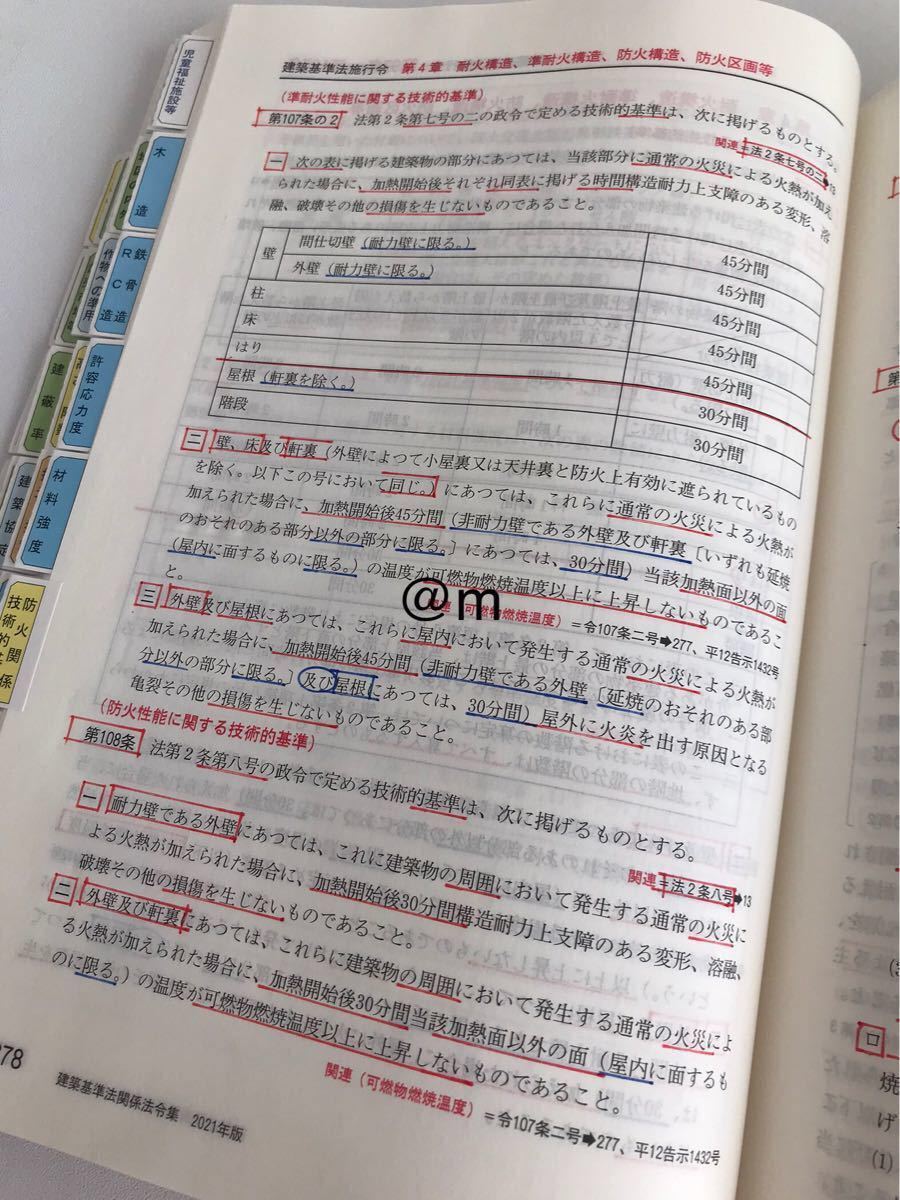 児童福祉施設等
木造
鉄骨造
RC造
工作物への準用
許容応力度
建蔽率
材料強度
建築協定
防火
技術的
関係
建築基準法施行令 第4章 耐火構造、準耐火構造、防火構造、防火区画等
(準耐火性能に関する技術的基準)
第107条の2 法第2条第七号の二の政令で定める技術的基準は、次に掲げるものとする。
関連=法2条七号の二➡13
一 次の表に掲げる建築物の部分にあつては、当該部分に通常の火災による火熱が加え
られた場合に、加熱開始後それぞれ同表に掲げる時間構造耐力上支障のある変形、溶
融、破壊その他の損傷を生じないものであること。
壁 間仕切壁(耐力壁に限る。) 45分間
外壁(耐力壁に限る。) 45分間
柱 45分間
床 45分間
はり 45分間
屋根(軒裏を除く。) 30分間
階段 30分間
二 壁、床及び軒裏(外壁によつて小屋裏又は天井裏と防火上有効に遮られているもの
を除く。以下この号において同じ。)にあつては、これらに通常の火災による火熱が
加えられた場合に、加熱開始後45分間(非耐力壁である外壁及び軒裏〔いずれも延焼
のおそれのある部分以外の部分に限る。〕にあつては、30分間)当該加熱面以外の面
(屋内に面するものに限る。)の温度が可燃物燃焼温度以上に上昇しないものであるこ
と。
@m
関連(可燃物燃焼温度)=令107条二号➡277、平12告示1432号
三 外壁及び屋根にあつては、これらに屋内において発生する通常の火災による火熱が
加えられた場合に、加熱開始後45分間(非耐力壁である外壁〔延焼のおそれのある部
分以外の部分に限る。〕及び屋根にあつては、30分間)屋外に火炎を出す原因となる
亀裂その他の損傷を生じないものであること。
(防火性能に関する技術的基準)
第108条 法第2条第八号の政令で定める技術的基準は、次に掲げるものとする。
関連=法2条八号➡13
一 耐力壁である外壁にあつては、これに建築物の周囲において発生する通常の火災に
よる火熱が加えられた場合に、加熱開始後30分間構造耐力上支障のある変形、溶融、
破壊その他の損傷を生じないものであること。
二 外壁及び軒裏にあつては、これらに建築物の周囲において発生する通常の火災によ
る火熱が加えられた場合に、加熱開始後30分間当該加熱面以外の面(屋内に面するも
のに限る。)の温度が可燃物燃焼温度以上に上昇しないものであること。
関連(可燃物燃焼温度)=令107条二号➡277、平12告示1432号
278
建築基準法関係法令集 2021年版
ロ
焼
げ
(1)